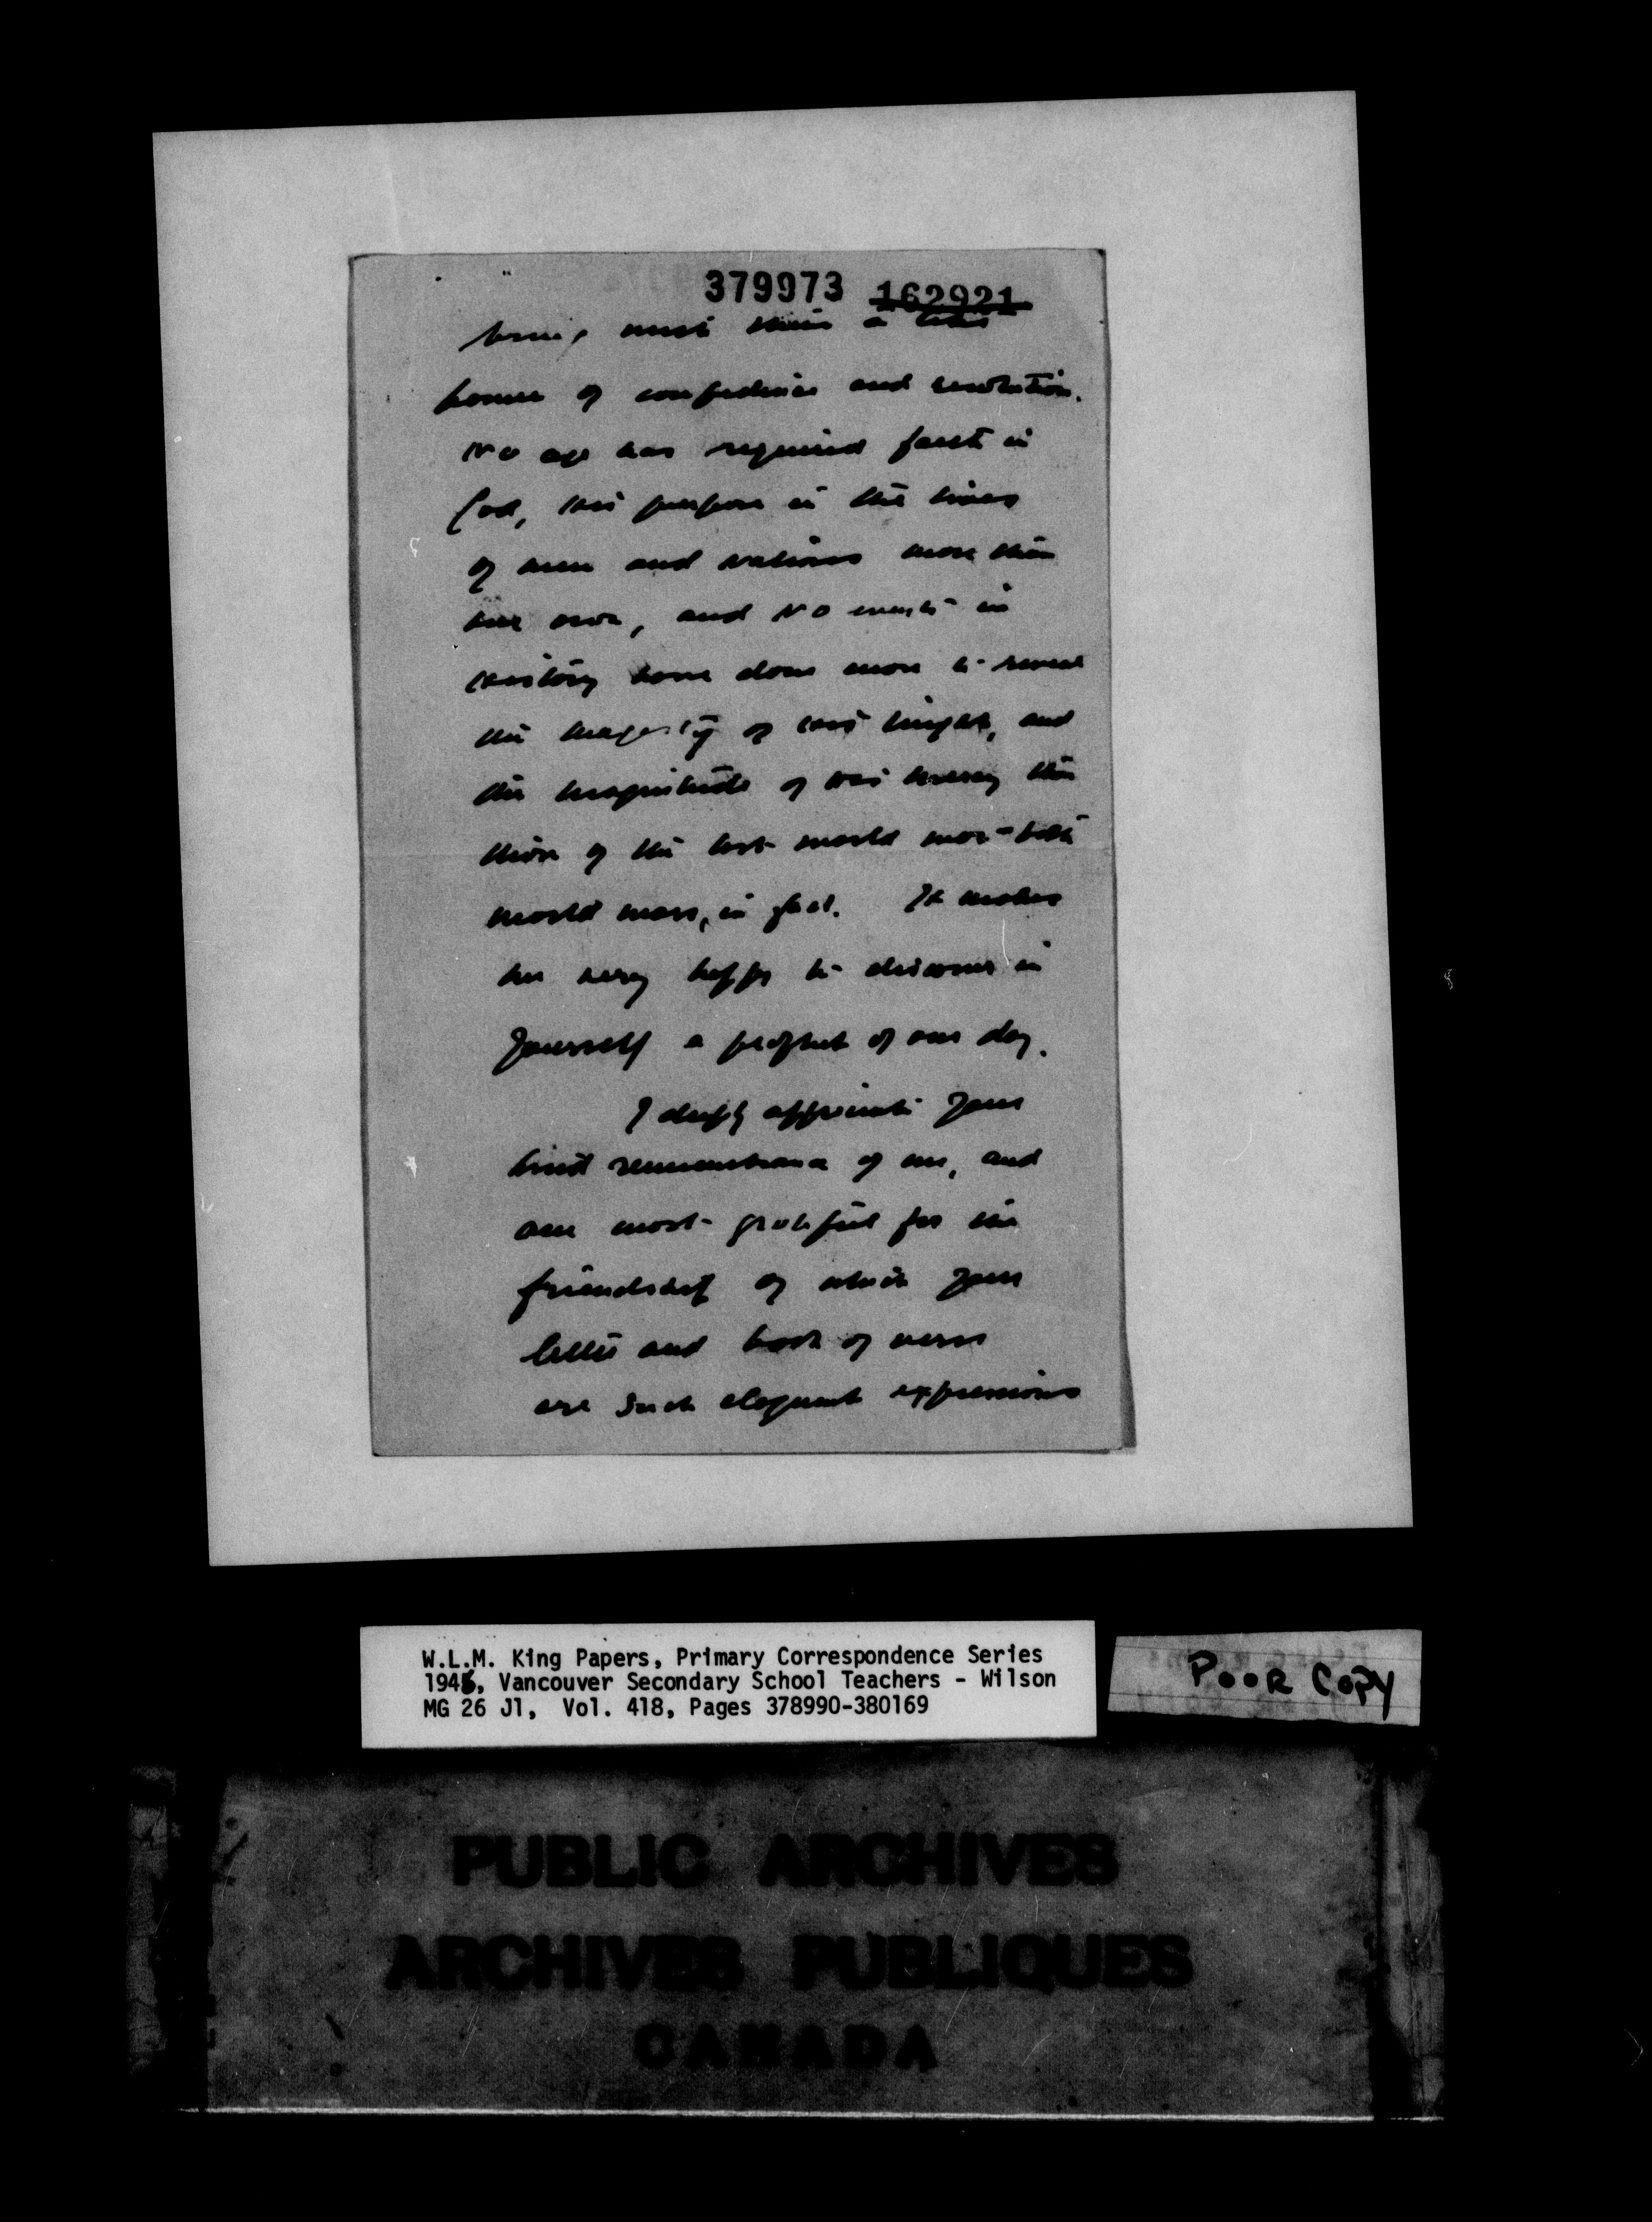 379973 162921
bring with them a
power of confidence and revelation.
No age has required faith in
God, His purpose in the lives
of men and nations more than
our own, and no events in
History have done more to reveal
the majesty of His might, and
the magnitude of His mercy than
those of the last world war - both
world wars, in fact. It makes
me very happy to discover in
yourself a prophet of our day.
I deeply appreciate your
kind remembrance of me, and
am most grateful for the
friendship of which your
letter and book of verse
are such eloquent expressions
W.L.M. King Papers, Primary Correspondence Series
1946, Vancouver Secondary School Teachers - Wilson
MG 26 J1, Vol. 418, Pages 378990-380169
POOR COPY
PUBLIC ARCHIVES
ARCHIVES PUBLIQUES
CANADA